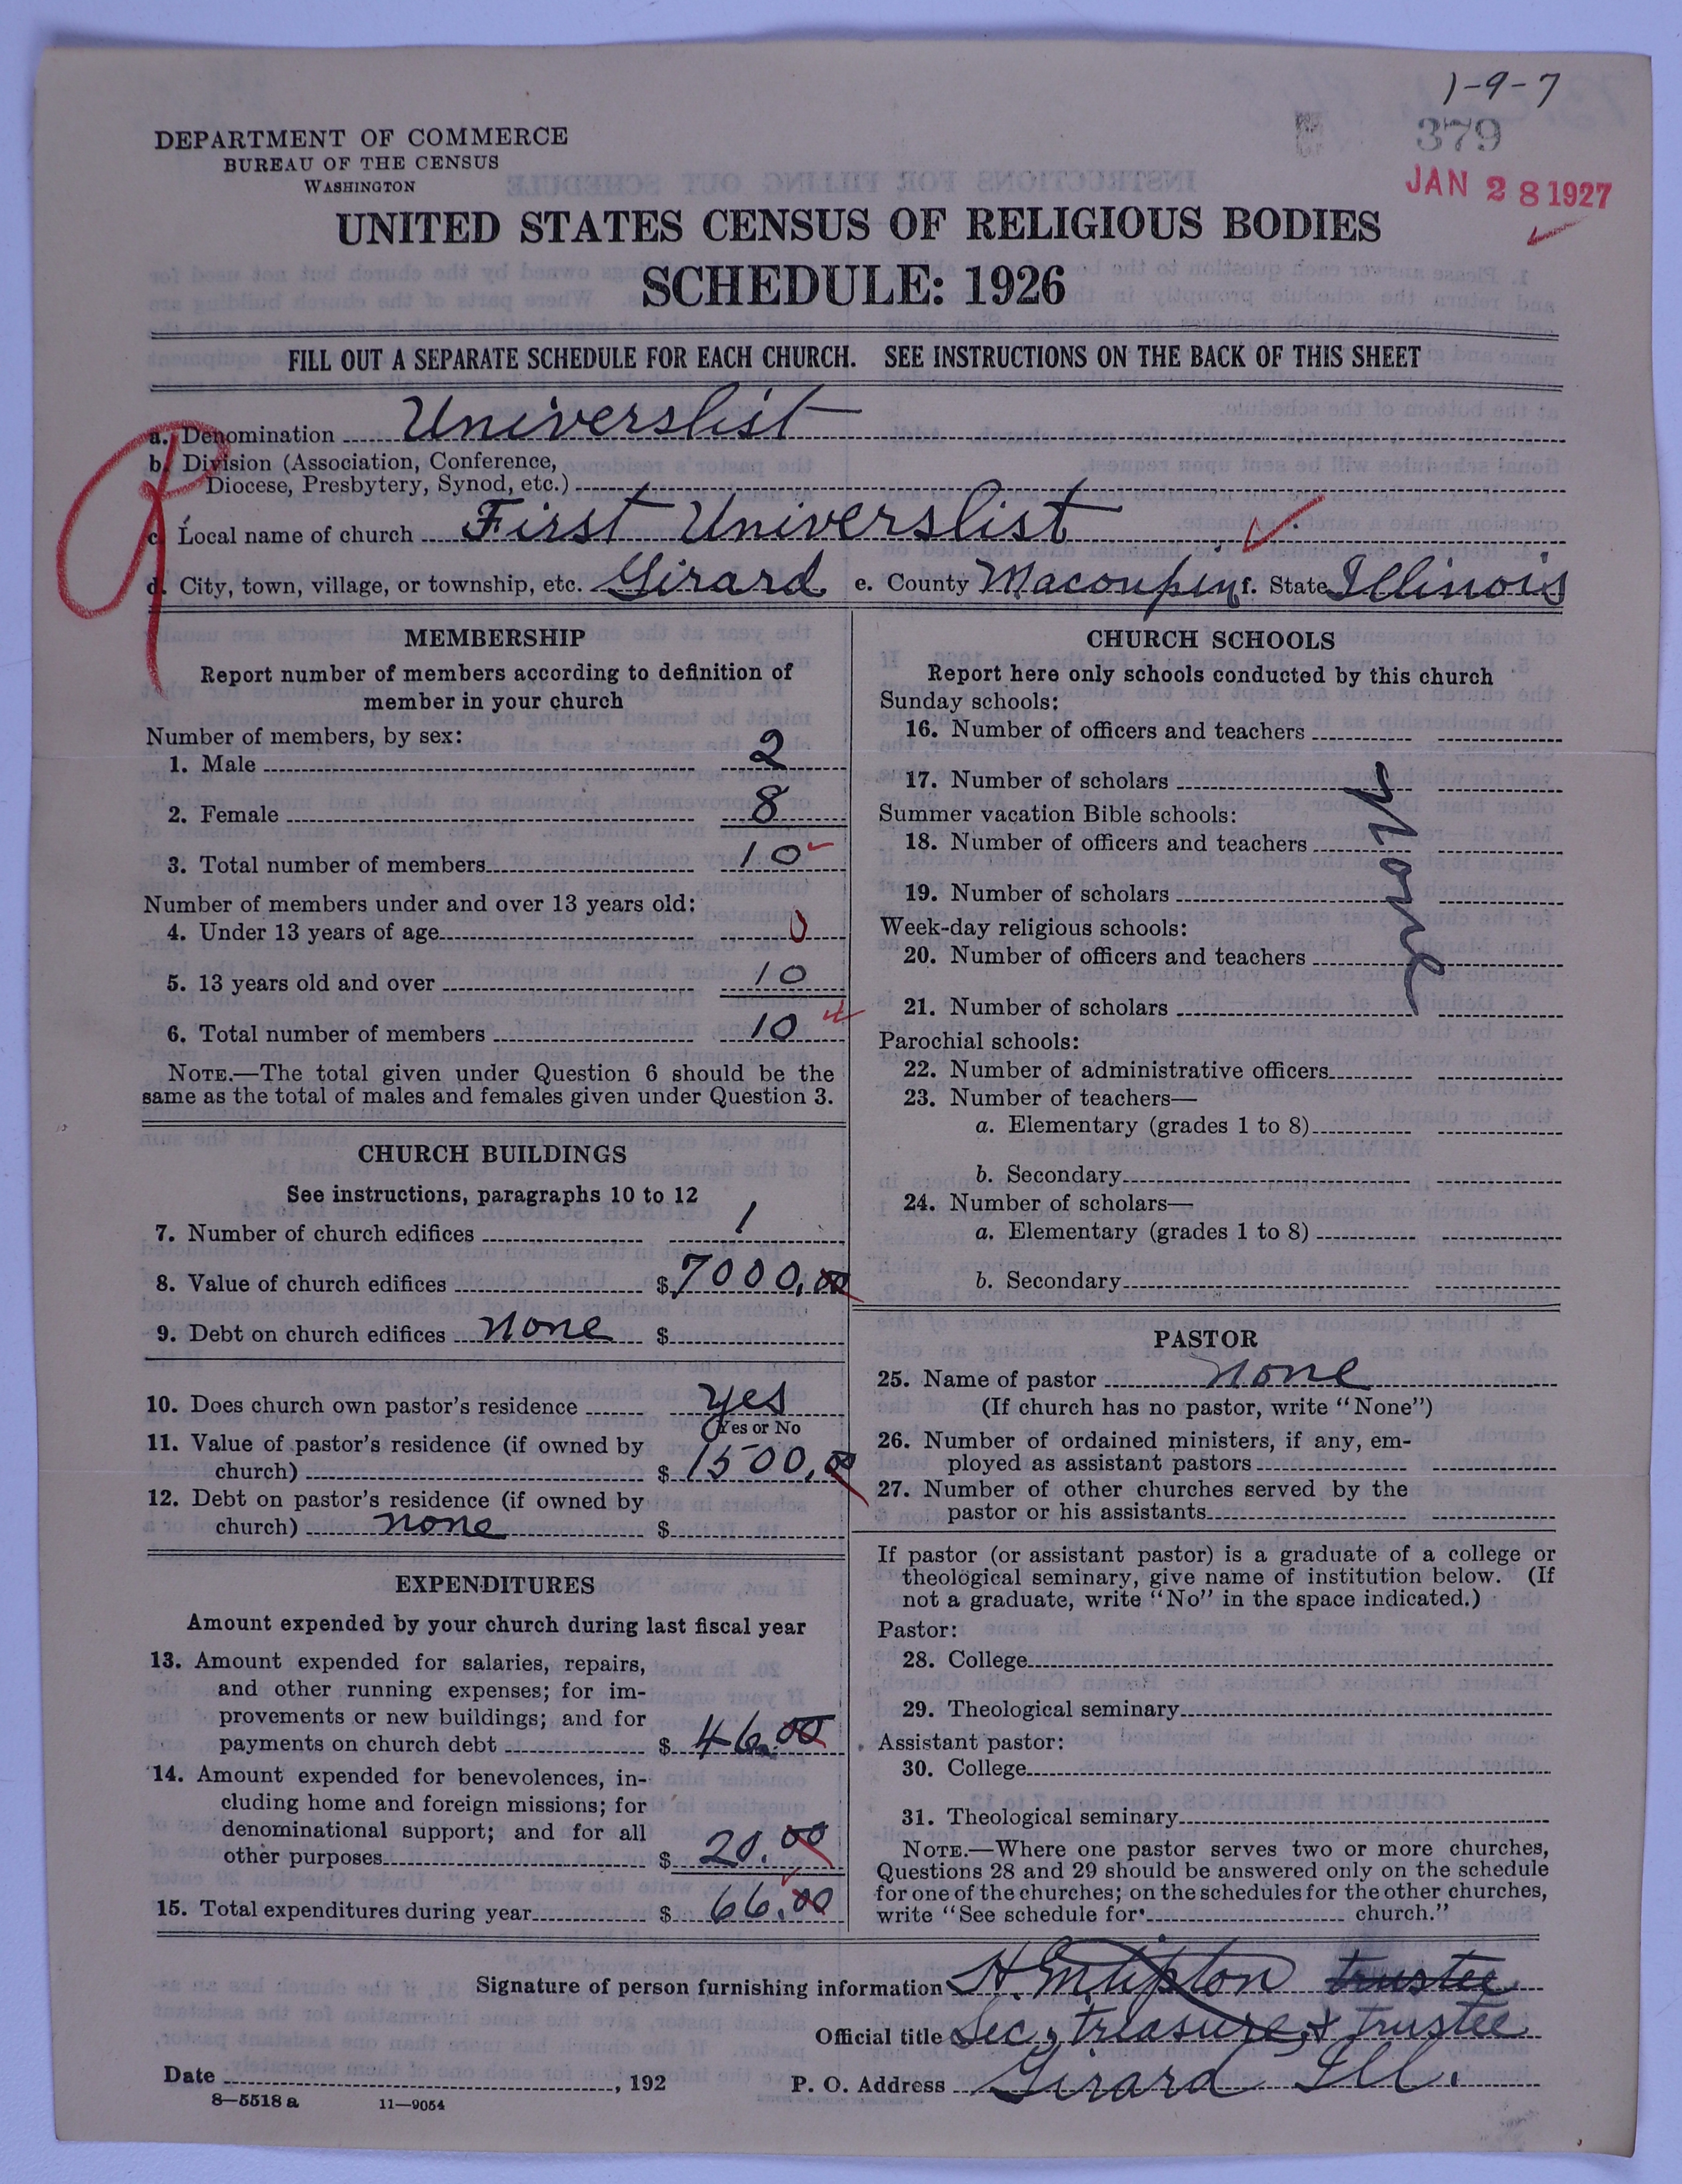 1-9-7
379
JAN 28 1927
DEPARTMENT OF COMMERCE
BUREAU OF THE CENSUS
WASHINGTON
UNITED STATES CENSUS OF RELIGIOUS BODIES
SCHEDULE: 1926
FILL OUT A SEPARATE SCHEDULE FOR EACH CHURCH. SEE INSTRUCTIONS ON THE BACK OF THIS SHEET
a. Denomination Universlist
b. Division (Association, Conference,
Diocese, Presbytery, Synod, etc.)
c. Local name of church First Universlist
d. City, town, village, or township, etc. Girard e. County Macoupin f. State Illinois
MEMBERSHIP
Report number of members according to definition of
member in your church
Number of members, by sex:
1. Male 2
2. Female 8
3. Total number of members 10
Number of members under and over 13 years old:
4. Under 13 years of age 0
5. 13 years old and over 10
6. Total number of members 10
NOTE.—The total given under Question 6 should be the
same as the total of males and females given under Question 3.
CHURCH BUILDINGS
See instructions, paragraphs 10 to 12
7. Number of church edifices 1
8. Value of church edifices $ 7000.00
9. Debt on church edifices none $
10. Does church own pastor's residence yes
Yes or No
11. Value of pastor's residence (if owned by
church) $ 1500.00
12. Debt on pastor's residence (if owned by
church) none $
EXPENDITURES
Amount expended by your church during last fiscal year
13. Amount expended for salaries, repairs,
and other running expenses; for im-
provements or new buildings; and for
payments on church debt $ 46.00
14. Amount expended for benevolences, in-
cluding home and foreign missions; for
denominational support; and for all
other purposes $ 20.00
15. Total expenditures during year $ 66.00
CHURCH SCHOOLS
Report here only schools conducted by this church
Sunday schools:
16. Number of officers and teachers
17. Number of scholars
Summer vacation Bible schools:
18. Number of officers and teachers
19. Number of scholars
Week-day religious schools:
20. Number of officers and teachers
21. Number of scholars
none
Parochial schools:
22. Number of administrative officers
23. Number of teachers—
a. Elementary (grades 1 to 8)
b. Secondary
24. Number of scholars—
a. Elementary (grades 1 to 8)
b. Secondary
PASTOR
25. Name of pastor none
(If church has no pastor, write "None")
26. Number of ordained ministers, if any, em-
ployed as assistant pastors
27. Number of other churches served by the
pastor or his assistants
If pastor (or assistant pastor) is a graduate of a college or
theological seminary, give name of institution below. (If
not a graduate, write "No" in the space indicated.)
Pastor:
28. College
29. Theological seminary
Assistant pastor:
30. College
31. Theological seminary
NOTE.—Where one pastor serves two or more churches,
Questions 28 and 29 should be answered only on the schedule
for one of the churches; on the schedules for the other churches,
write "See schedule for church."
Signature of person furnishing information H. E. Tipton trustee
Official title Sec, treasure, & trustee
Date , 192 P. O. Address Girard Ill.
8—5518 a 11—9054